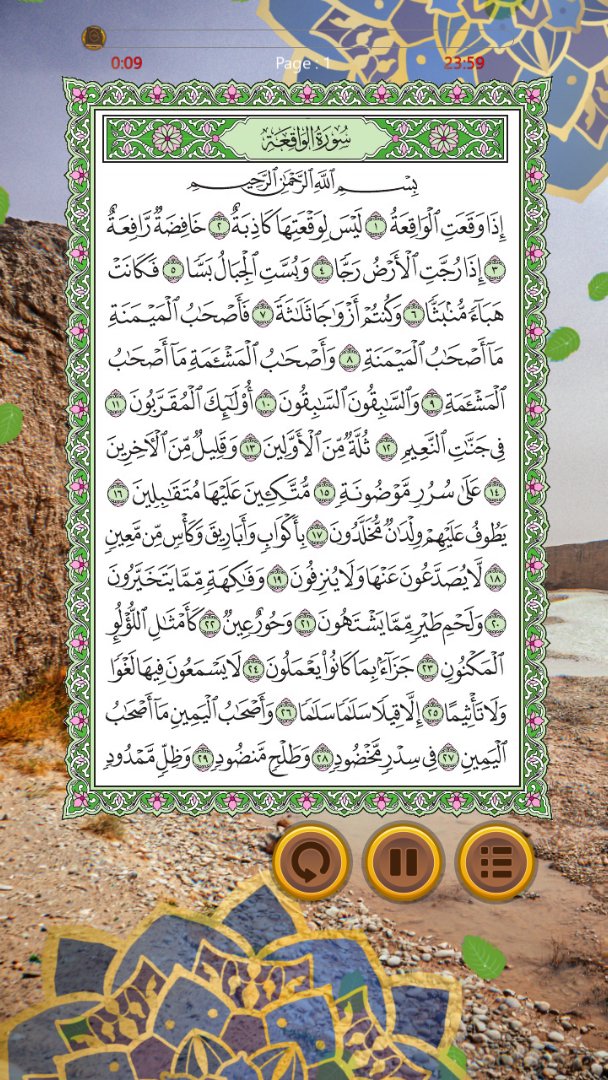 0:09 Page : 1 23:59
سُورَةُ الْوَاقِعَة
بِسْمِ ٱللَّهِ ٱلرَّحْمَٰنِ ٱلرَّحِيمِ
إِذَا وَقَعَتِ ٱلْوَاقِعَةُ ١ لَيْسَ لِوَقْعَتِهَا كَاذِبَةٌ ٢ خَافِضَةٌ رَّافِعَةٌ
٣ إِذَا رُجَّتِ ٱلْأَرْضُ رَجًّا ٤ وَبُسَّتِ ٱلْجِبَالُ بَسًّا ٥ فَكَانَتْ
هَبَآءً مُّنۢبَثًّا ٦ وَكُنتُمْ أَزْوَٰجًا ثَلَٰثَةً ٧ فَأَصْحَٰبُ ٱلْمَيْمَنَةِ
مَآ أَصْحَٰبُ ٱلْمَيْمَنَةِ ٨ وَأَصْحَٰبُ ٱلْمَشْـَٔمَةِ مَآ أَصْحَٰبُ
ٱلْمَشْـَٔمَةِ ٩ وَٱلسَّٰبِقُونَ ٱلسَّٰبِقُونَ ١٠ أُو۟لَٰٓئِكَ ٱلْمُقَرَّبُونَ ١١
فِى جَنَّٰتِ ٱلنَّعِيمِ ١٢ ثُلَّةٌ مِّنَ ٱلْأَوَّلِينَ ١٣ وَقَلِيلٌ مِّنَ ٱلْـَٔاخِرِينَ
١٤ عَلَىٰ سُرُرٍ مَّوْضُونَةٍ ١٥ مُّتَّكِـِٔينَ عَلَيْهَا مُتَقَٰبِلِينَ ١٦
يَطُوفُ عَلَيْهِمْ وِلْدَٰنٌ مُّخَلَّدُونَ ١٧ بِأَكْوَابٍ وَأَبَارِيقَ وَكَأْسٍ مِّن مَّعِينٍ
١٨ لَّا يُصَدَّعُونَ عَنْهَا وَلَا يُنزِفُونَ ١٩ وَفَٰكِهَةٍ مِّمَّا يَتَخَيَّرُونَ
٢٠ وَلَحْمِ طَيْرٍ مِّمَّا يَشْتَهُونَ ٢١ وَحُورٌ عِينٌ ٢٢ كَأَمْثَٰلِ ٱللُّؤْلُؤِ
ٱلْمَكْنُونِ ٢٣ جَزَآءًۢ بِمَا كَانُوا۟ يَعْمَلُونَ ٢٤ لَا يَسْمَعُونَ فِيهَا لَغْوًا
وَلَا تَأْثِيمًا ٢٥ إِلَّا قِيلًا سَلَٰمًا سَلَٰمًا ٢٦ وَأَصْحَٰبُ ٱلْيَمِينِ مَآ أَصْحَٰبُ
ٱلْيَمِينِ ٢٧ فِى سِدْرٍ مَّخْضُودٍ ٢٨ وَطَلْحٍ مَّنضُودٍ ٢٩ وَظِلٍّ مَّمْدُودٍ